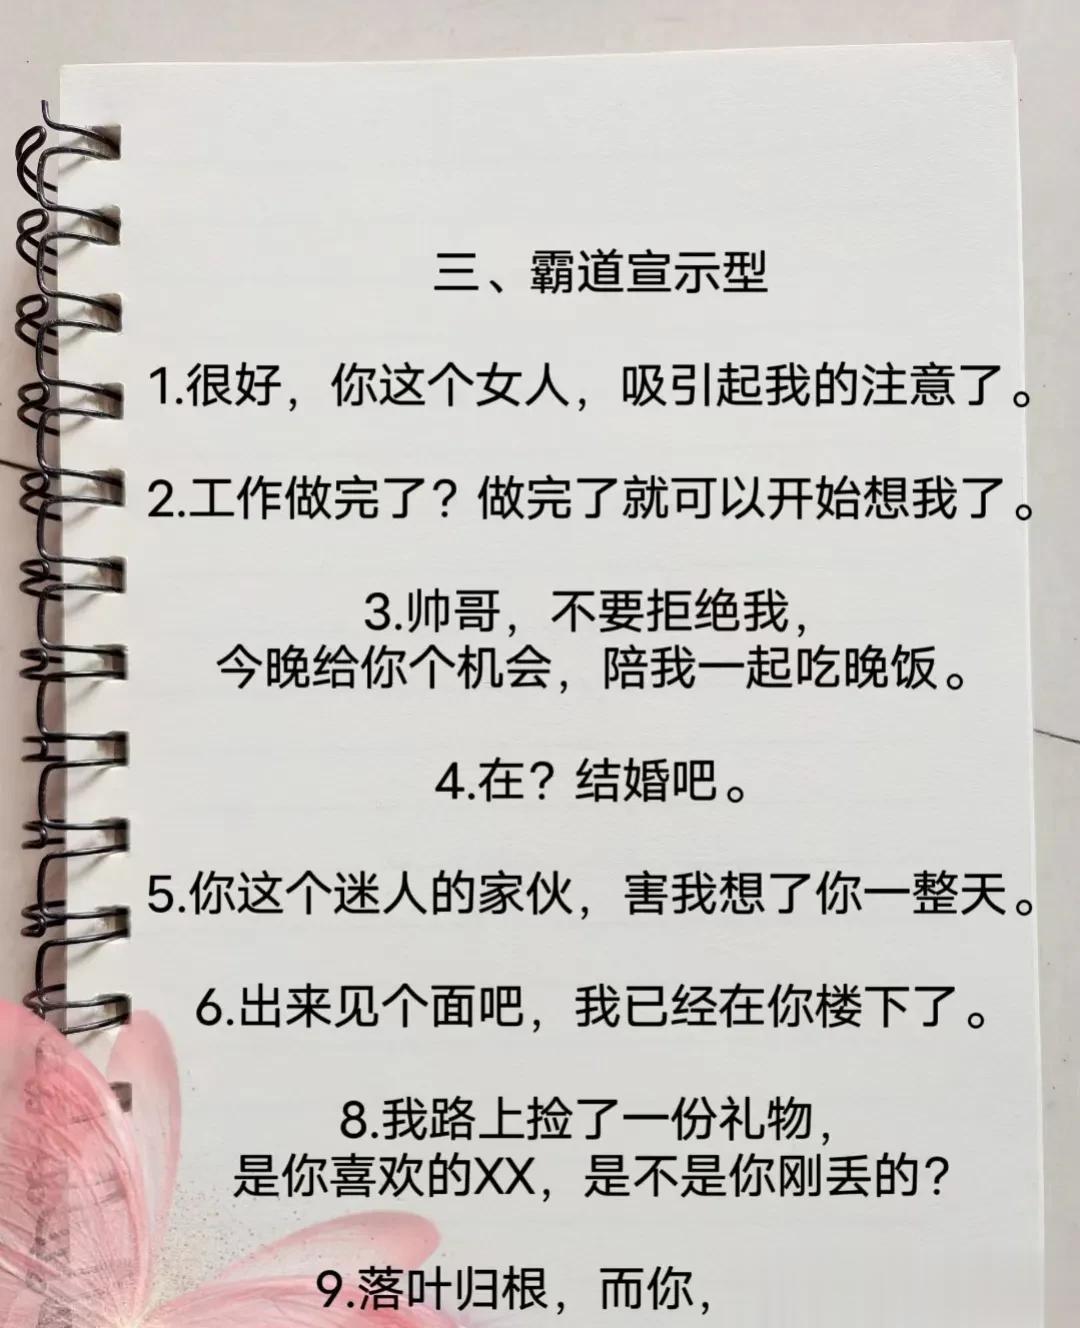 三、霸道宣示型
1.很好，你这个女人，吸引起我的注意了。
2.工作做完了？做完了就可以开始想我了。
3.帅哥，不要拒绝我，
今晚给你个机会，陪我一起吃晚饭。
4.在？结婚吧。
5.你这个迷人的家伙，害我想了你一整天。
6.出来见个面吧，我已经在你楼下了。
8.我路上捡了一份礼物，
是你喜欢的XX，是不是你刚丢的？
9.落叶归根，而你，